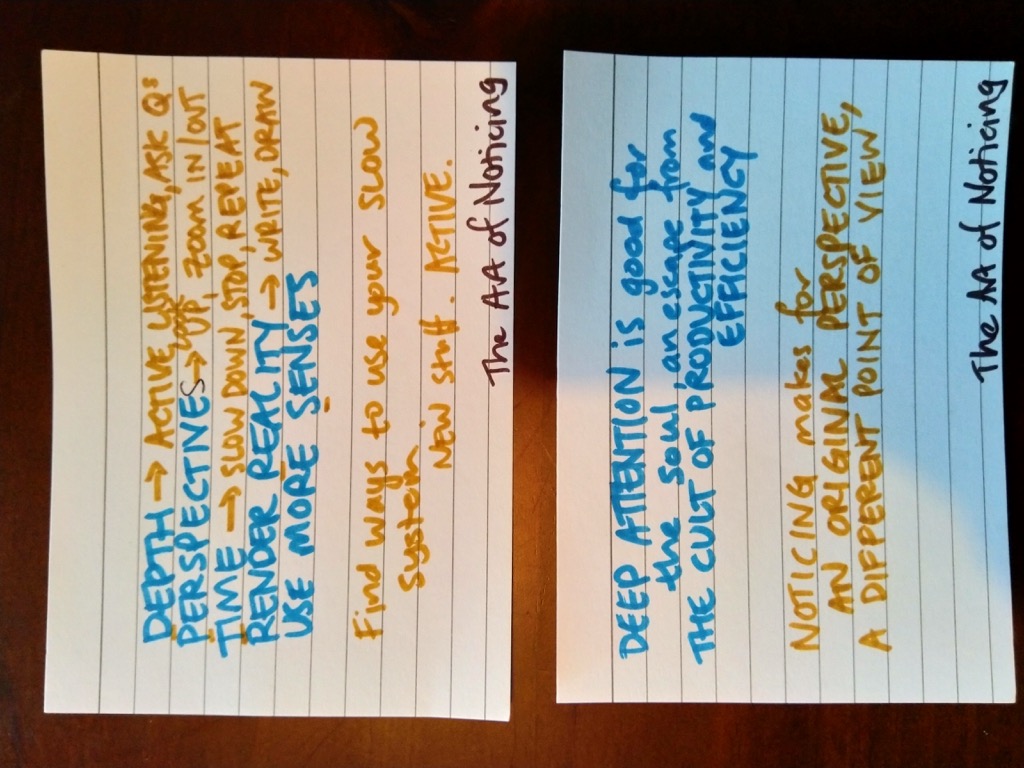 DEPTH → ACTIVE LISTENING, ASK Qs
PERSPECTIVES → UP, ZOOM IN/OUT
TIME → SLOW DOWN, STOP, REPEAT
RENDER REALITY → WRITE, DRAW
USE MORE SENSES
Find ways to use your slow
system
New stuff. ACTIVE.
The AA of Noticing
DEEP ATTENTION is good for
the soul an escape from
THE CULT OF PRODUCTIVITY and
EFFICIENCY
NOTICING makes for
AN ORIGINAL PERSPECTIVE,
A DIFFERENT POINT OF VIEW
The AA of Noticing